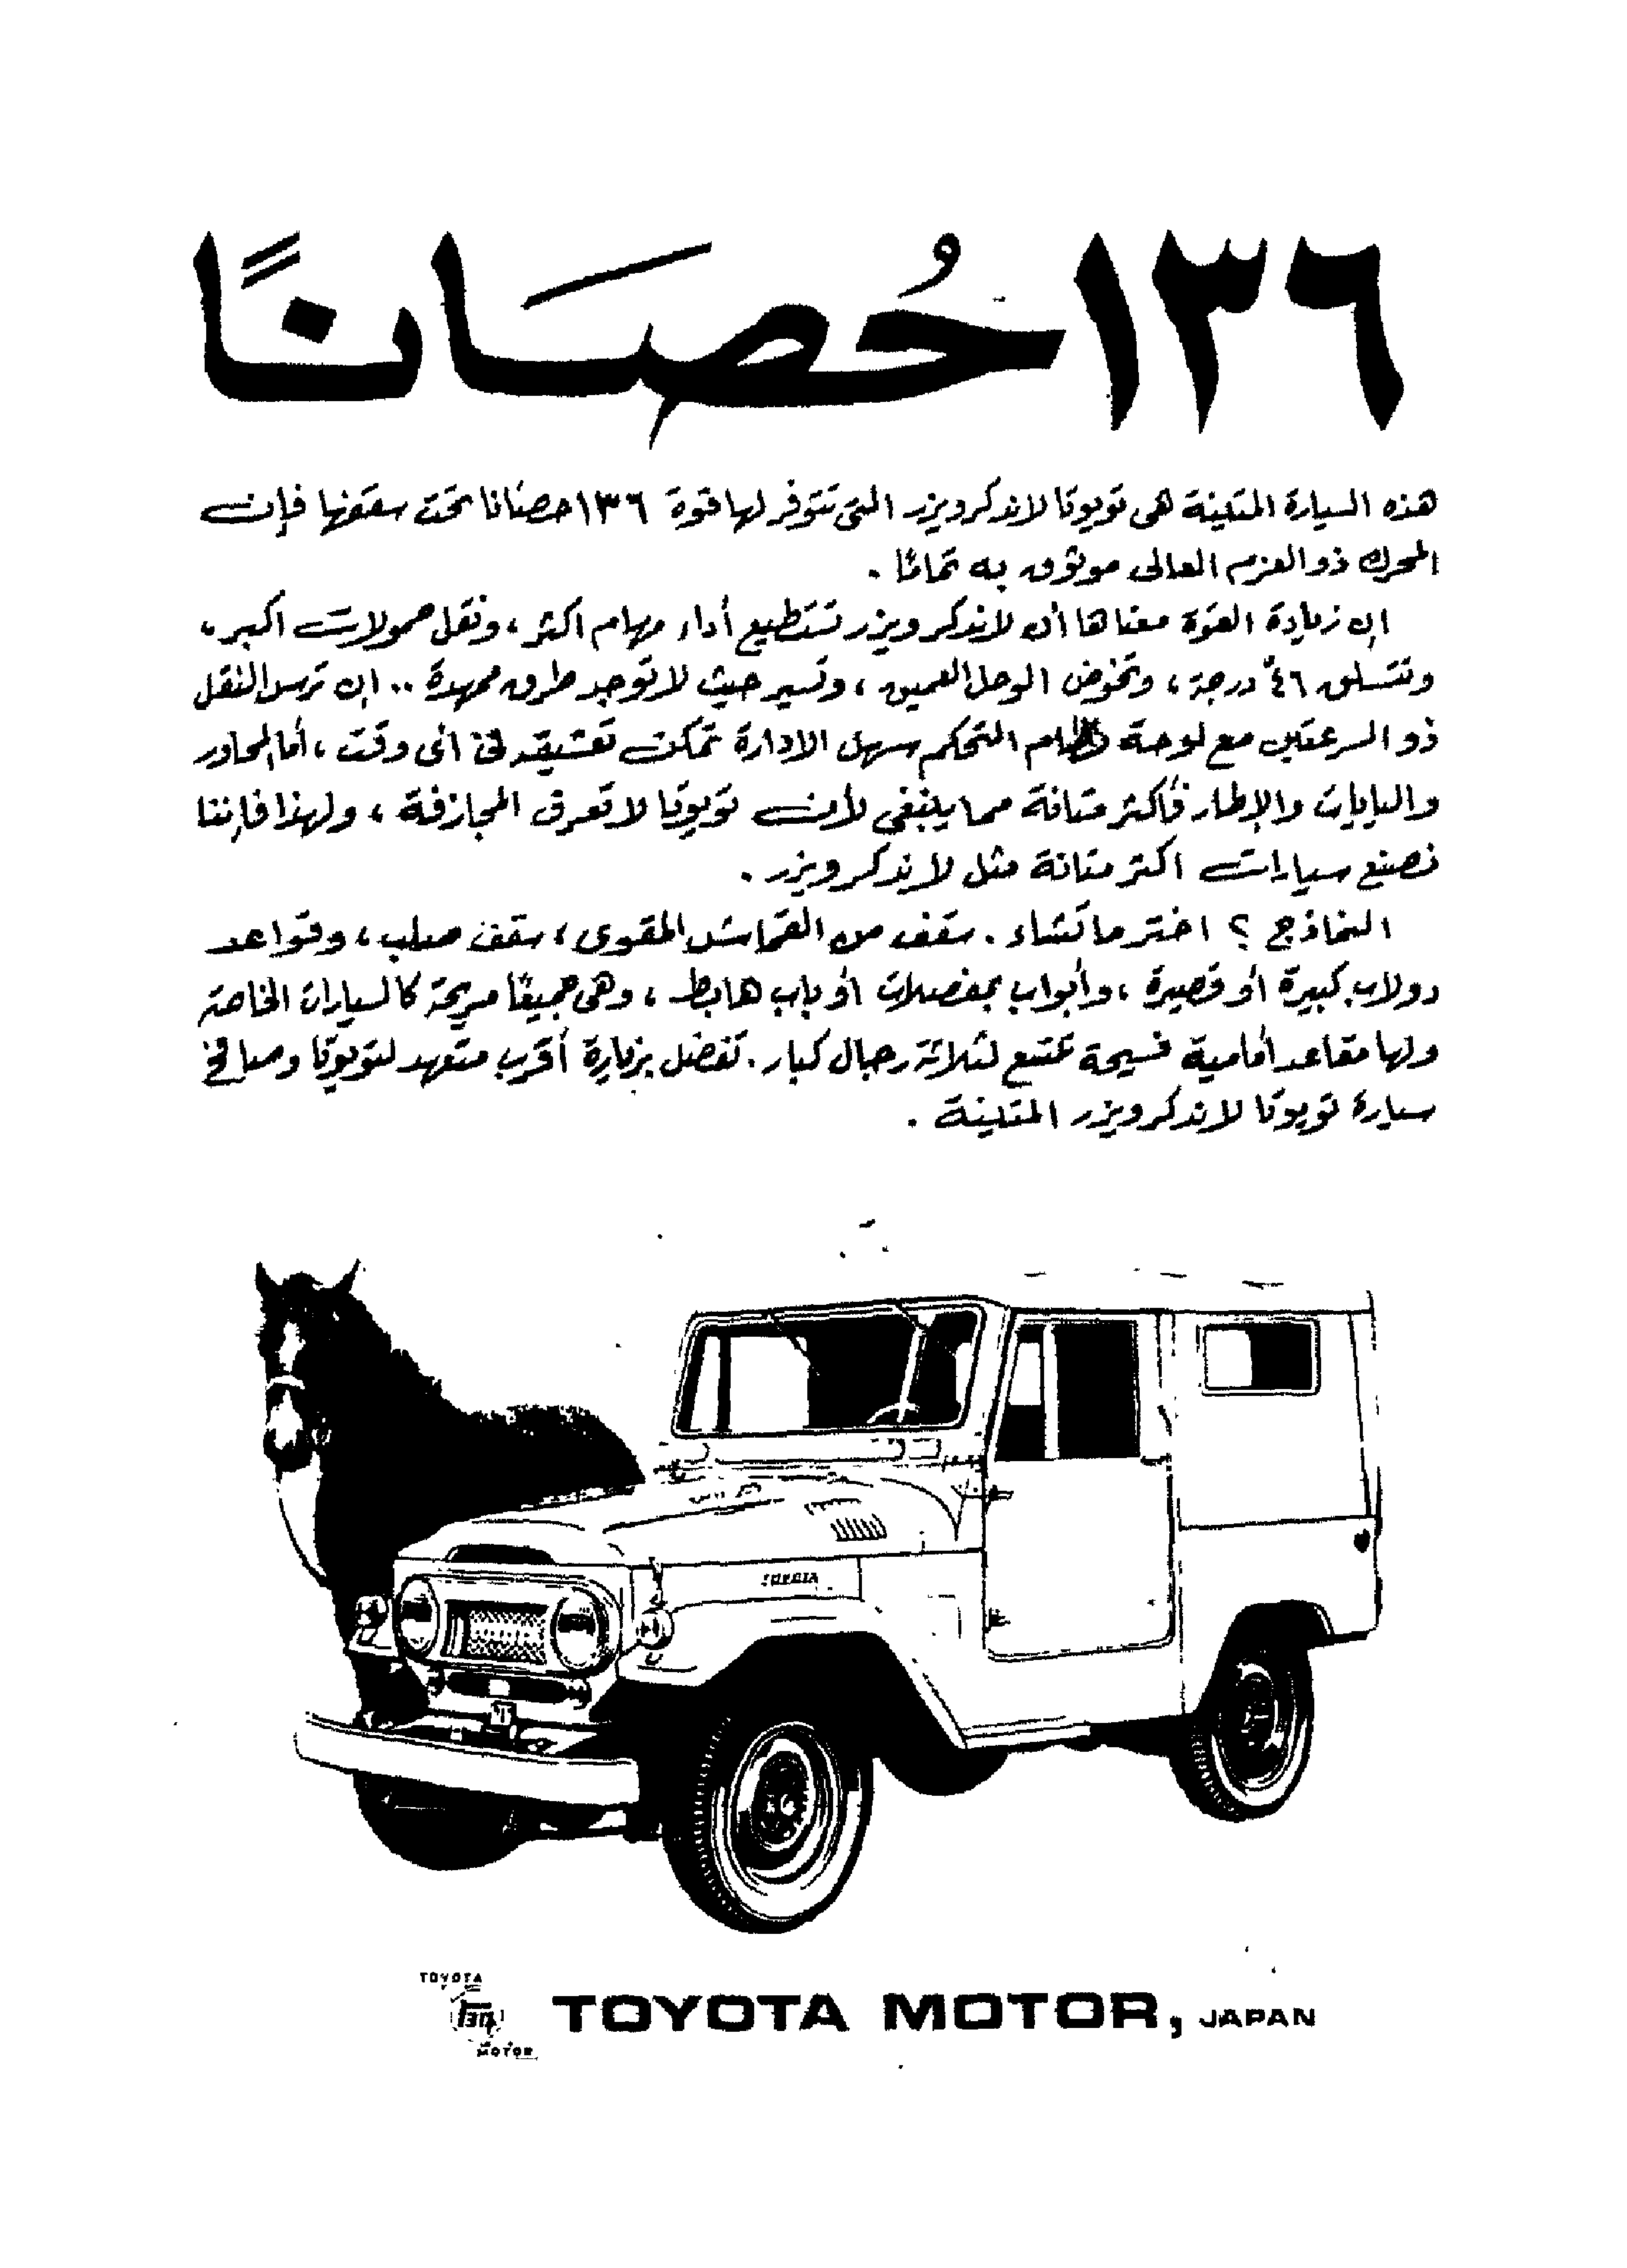 ١٣٦ حُصَانًا
هذه السيارة المتينة هى تويوتا لاندكرويزر التى تتوفر لها قوة ١٣٦ حصانا تحت سقفها فإن
المحرك ذو العزم العالى موثوق به تمامًا .
ان زيادة القوة معناها أن لاندكرويزر تستطيع أداء مهام اكثر ، ونقل حمولات اكبر ،
وتتسلق ٤٦° درجة ، وتخوض الوحل العميق ، وتسير حيث لا توجد طرق ممهدة .. ان ترس النقل
ذو السرعتين مع لوحة نظام التحكم سهل الادارة تمكن تعشيقه فى أى وقت ، أما المحاور
واليايات والإطار فأكثر متانة مما ينبغى لأن تويوتا لا تعرف المجازفة ، ولهذا فإننا
نصنع سيارات اكثر متانة مثل لاندكرويزر .
النماذج ؟ اختر ما تشاء . سقف من القماش المقوى ، سقف صلب ، وقواعد
دولاب كبيرة أو قصيرة ، وأبواب بمفصلات أو باب هابط ، وهى جميعًا مريحة كالسيارات الخاصة
ولها مقاعد أمامية فسيحة تتسع لثلاثة رجال كبار . تفضل بزيارة أقرب متعهد لتويوتا وصافح
سيارة تويوتا لاندكرويزر المتينة .
TOYOTA
TOYOTA
MOTOR
TOYOTA MOTOR, JAPAN